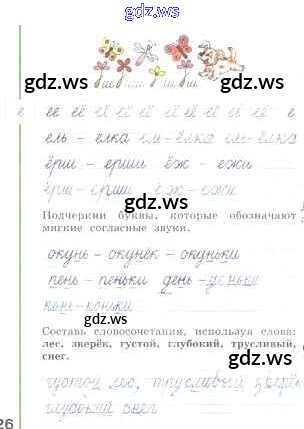 gdz.ws
gdz.ws gdz.ws
ё ё ё
ель – ёлка ель – ёлка ель – ёлка
ёрш – ерши ёж – ежи
gdz.ws
ёрш – ерши ёж – ежи
Подчеркни буквы, которые обозначают
мягкие согласные звуки.
gdz.ws gdz.ws
окунь – окунёк – окуньки
пень – пеньки день – деньки
конь – коньки
gdz.ws
Составь словосочетания, используя слова:
лес, зверёк, густой, глубокий, трусливый,
снег.
gdz.ws gdz.ws
густой лес, трусливый зверёк
глубокий снег
26
gdz.ws